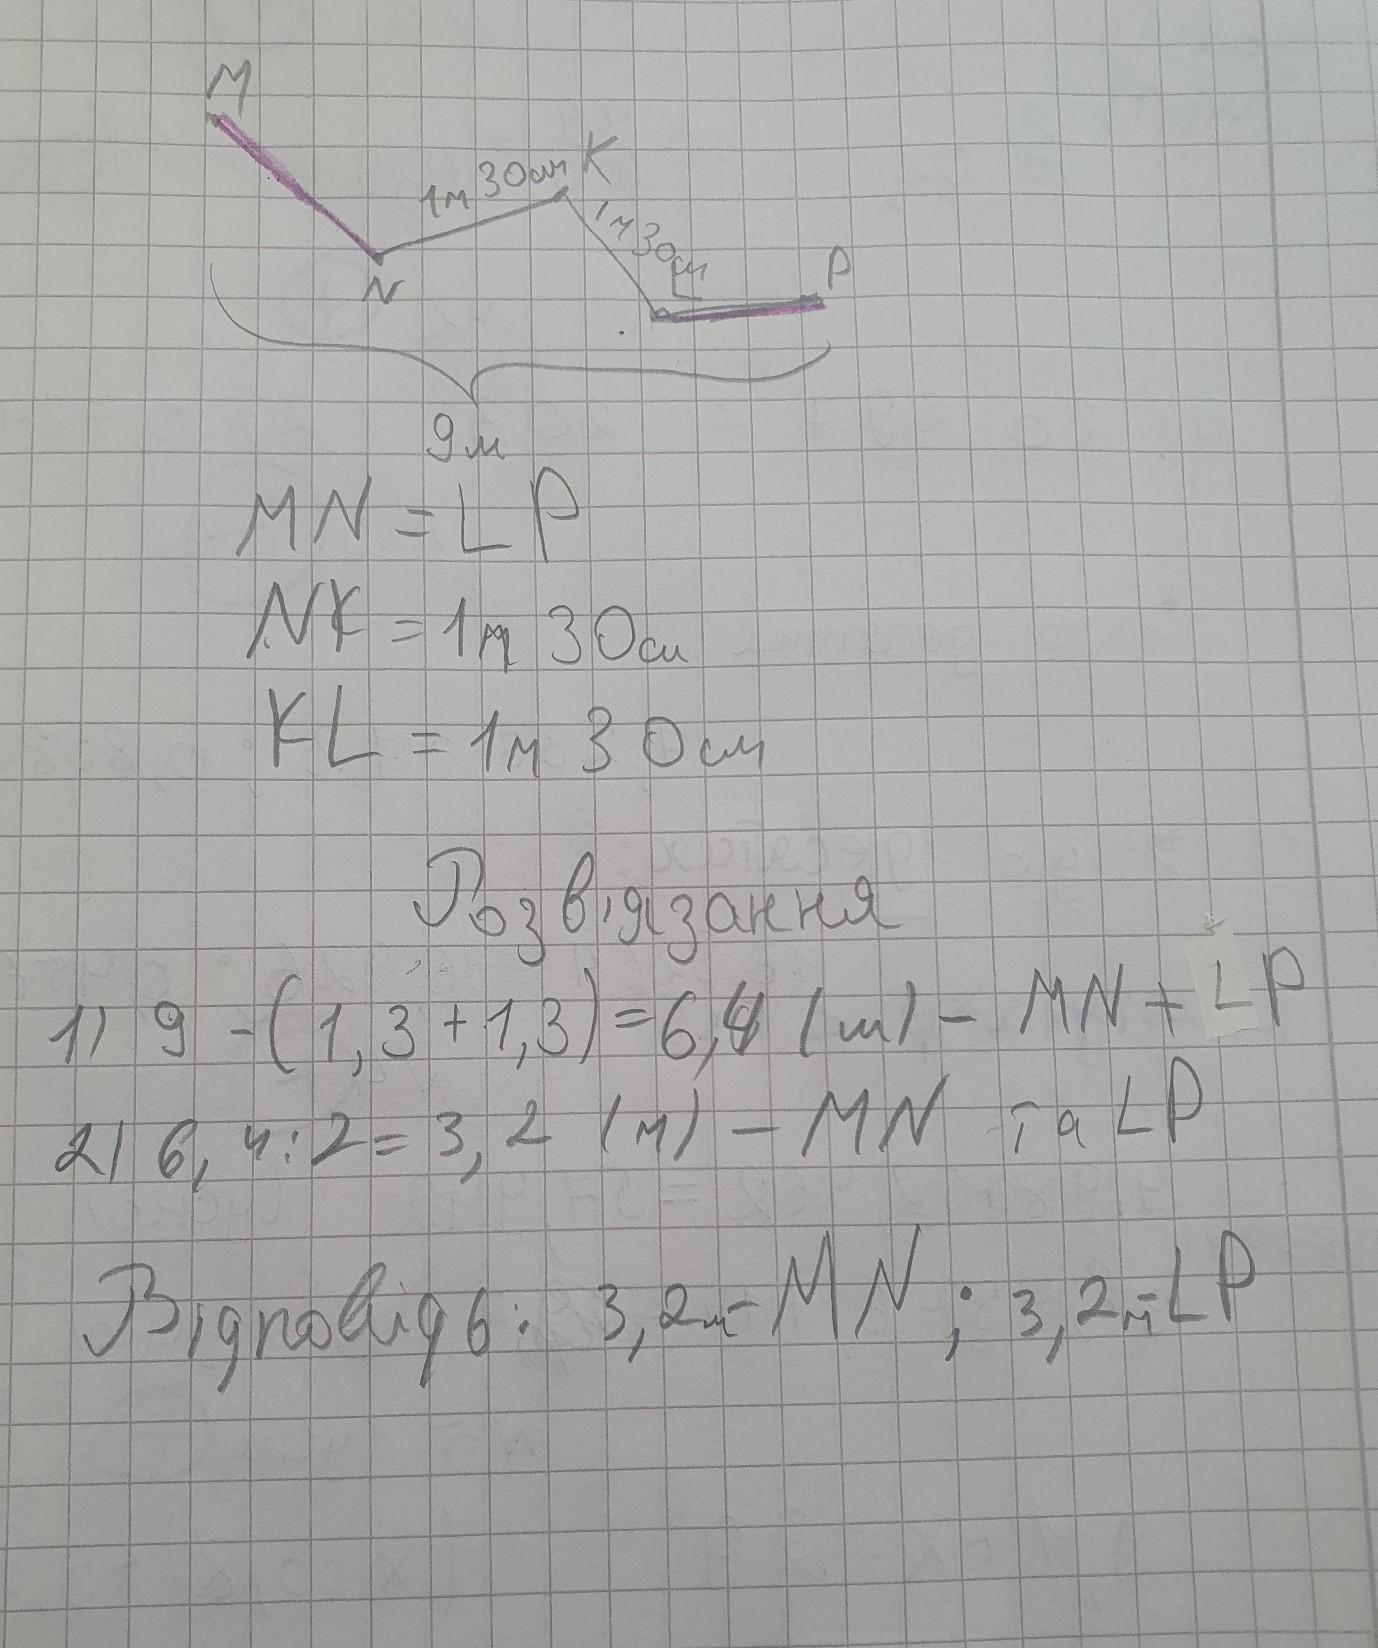 M
1м 30см K
1м 30см
N
L
P
9м
MN = LP
NK = 1м 30см
KL = 1м 30см
Розв'язання
1) 9 - (1,3 + 1,3) = 6,4 (м) - MN + LP
2) 6,4 : 2 = 3,2 (м) - MN та LP
Відповідь: 3,2м - MN; 3,2м - LP